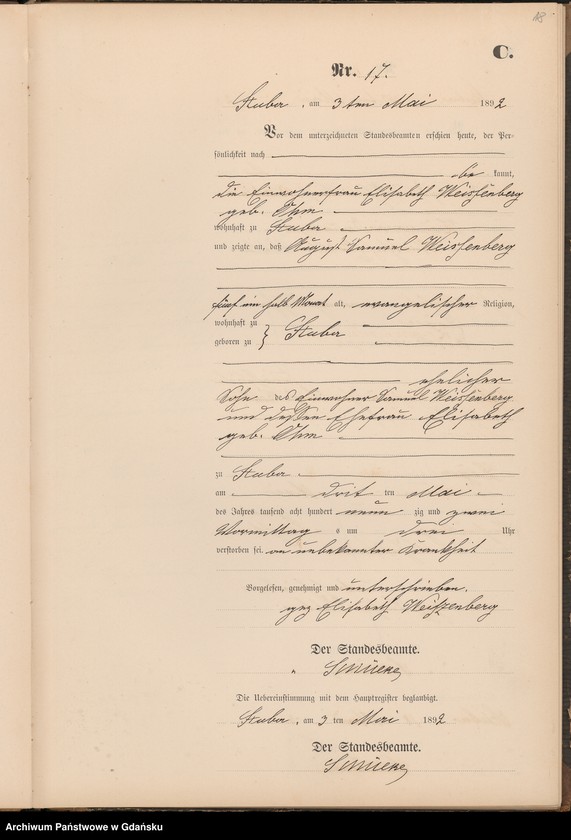 18
C.
Nr. 17.
Stuba, am 3 ten Mai 1892
Vor dem unterzeichneten Standesbeamten erschien heute, der Per-
sönlichkeit nach
be kannt,
die Einwohnerfrau Elisabeth Weissenberg
geb. Ohm
wohnhaft zu Stuba
und zeigte an, daß August Samuel Weissenberg
fünf ein halb Monat alt, evangelischer Religion,
wohnhaft zu
geboren zu } Stuba
ehelicher
Sohn des Einwohner Samuel Weissenberg
und dessen Ehefrau Elisabeth
geb. Ohm
zu Stuba
am drit ten Mai
des Jahres tausend acht hundert neun zig und zwei
Vormittag s um drei Uhr
verstorben sei. an unbekannter Krankheit
Vorgelesen, genehmigt und unterschrieben.
gez Elisabeth Weiszenberg
Der Standesbeamte.
Die Uebereinstimmung mit dem Hauptregister beglaubigt.
Stuba, am 3 ten Mai 1892
Der Standesbeamte.
Archiwum Państwowe w Gdańsku